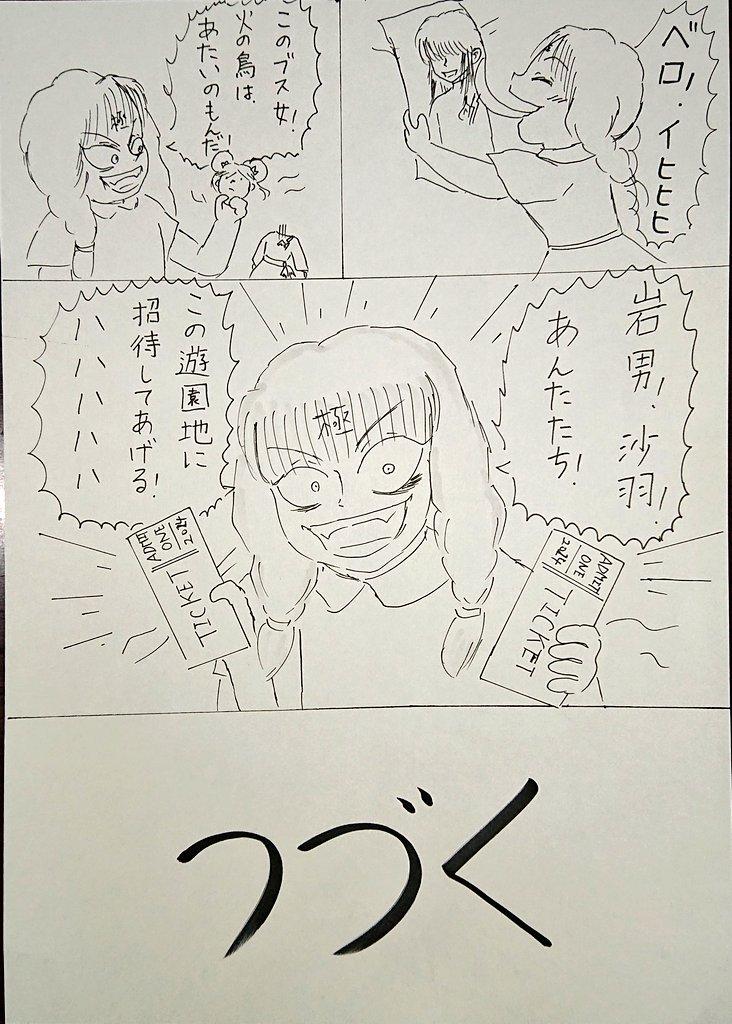 ベロ!イヒヒヒ
このブス女!
火の鳥は、
あたいのもんだ!
極
岩男!沙羽!
あんたたち!
極
この遊園地に
招待してあげる!
ハハハハハハ
ADMIT
ONE
2024
TICKET
ADMIT
ONE
2024
TICKET
つづく